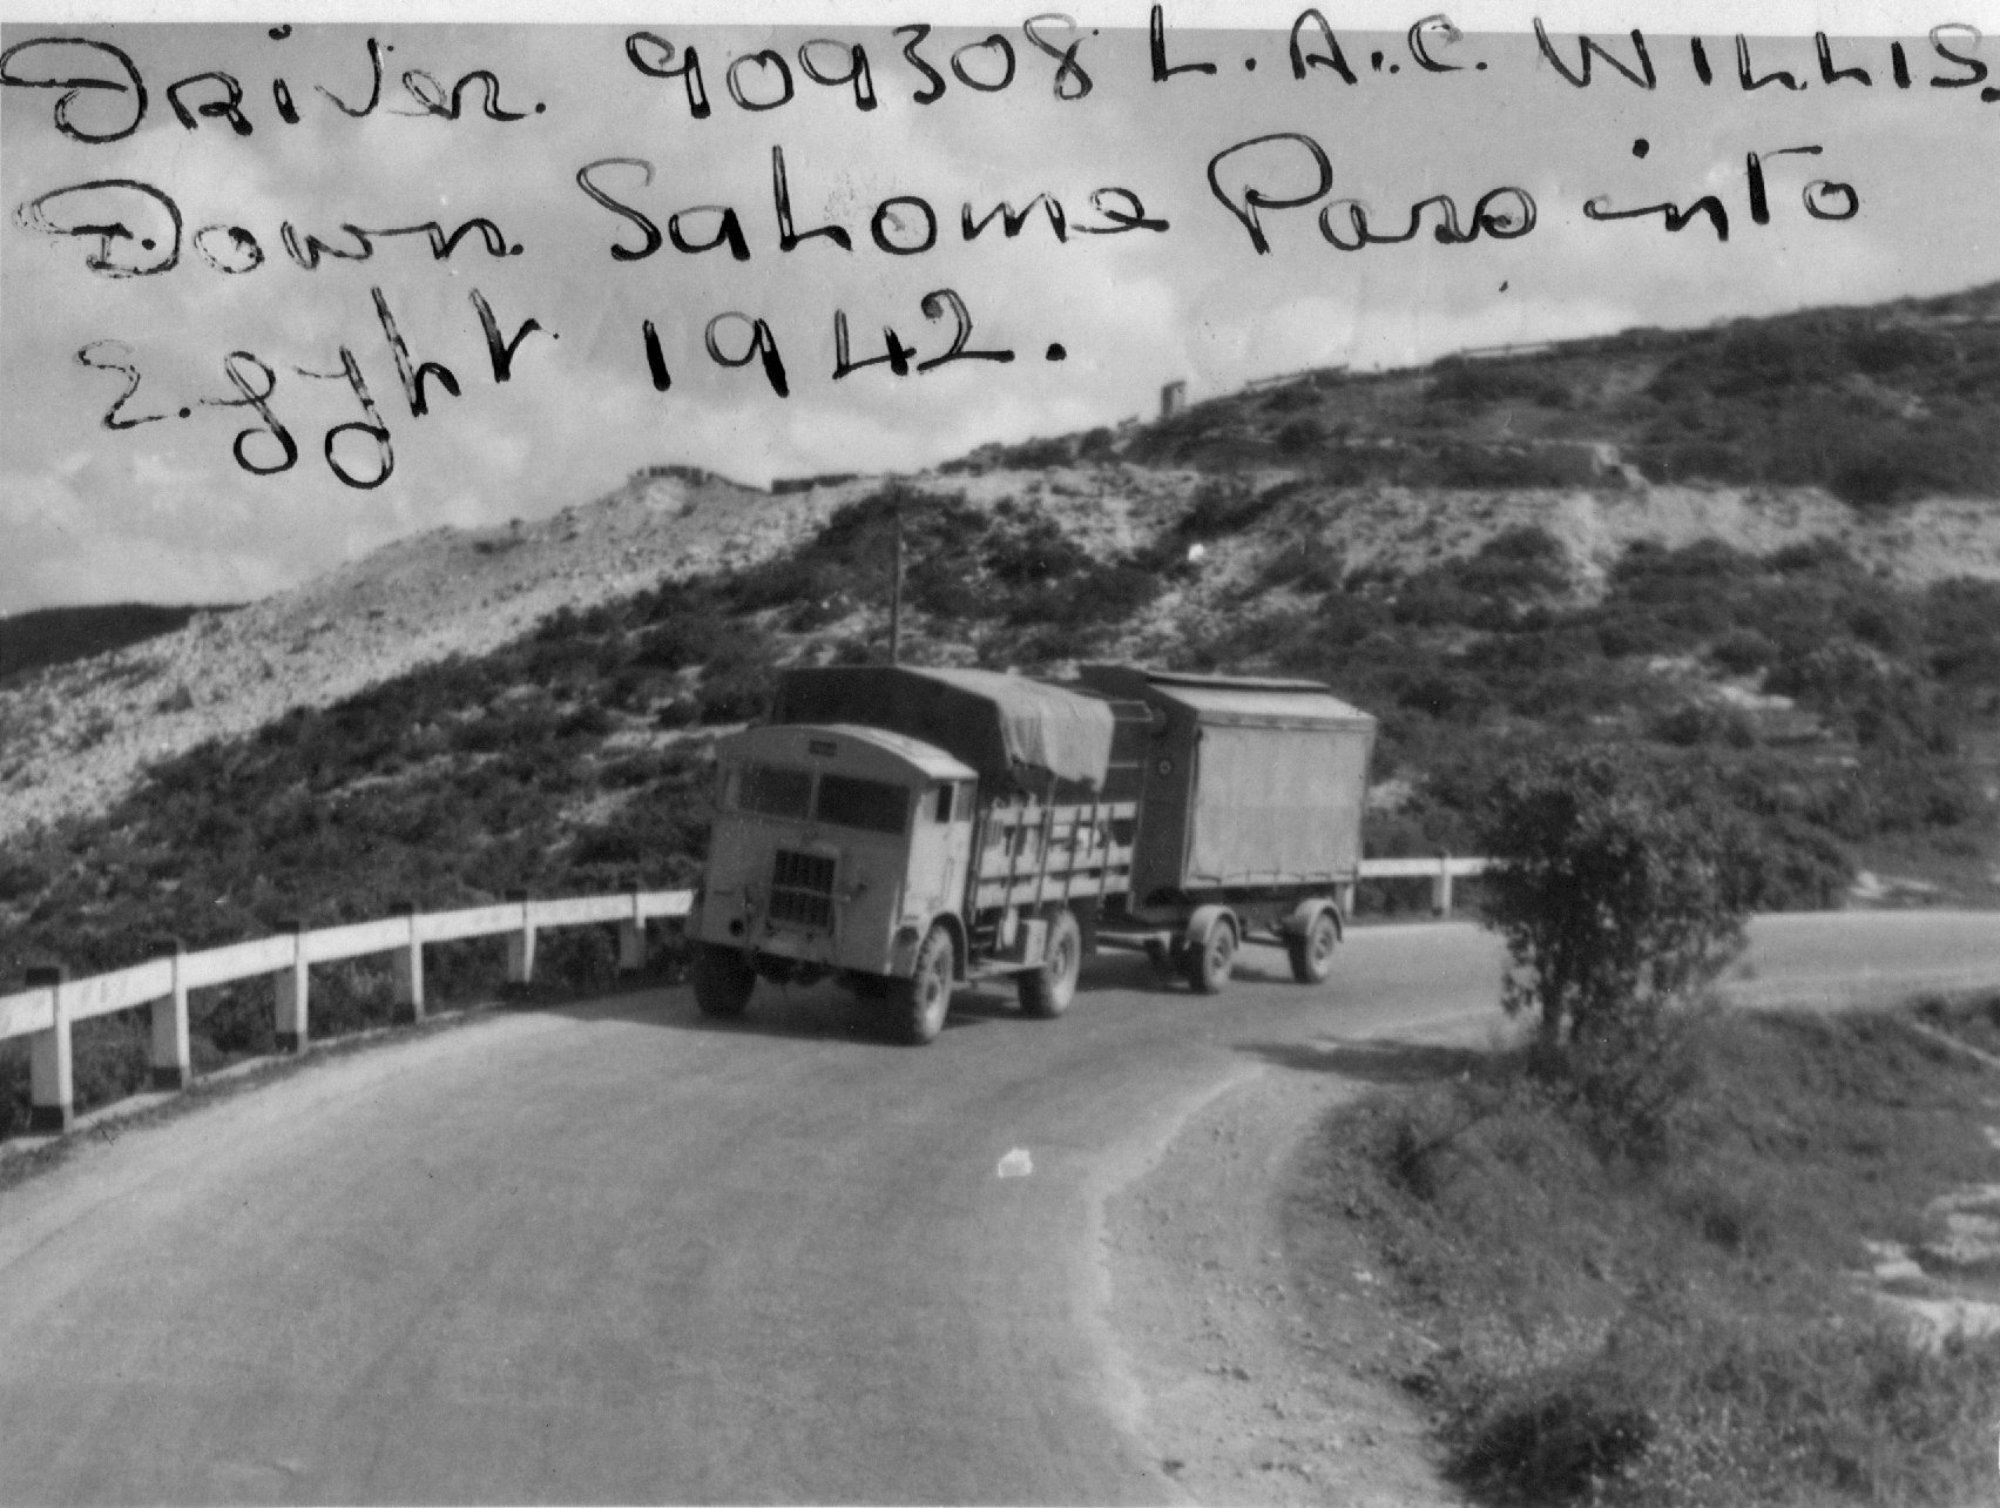 Driver. 909308 L.A.C. WILLIS.
Down Salome Pass into
Egypt 1942.